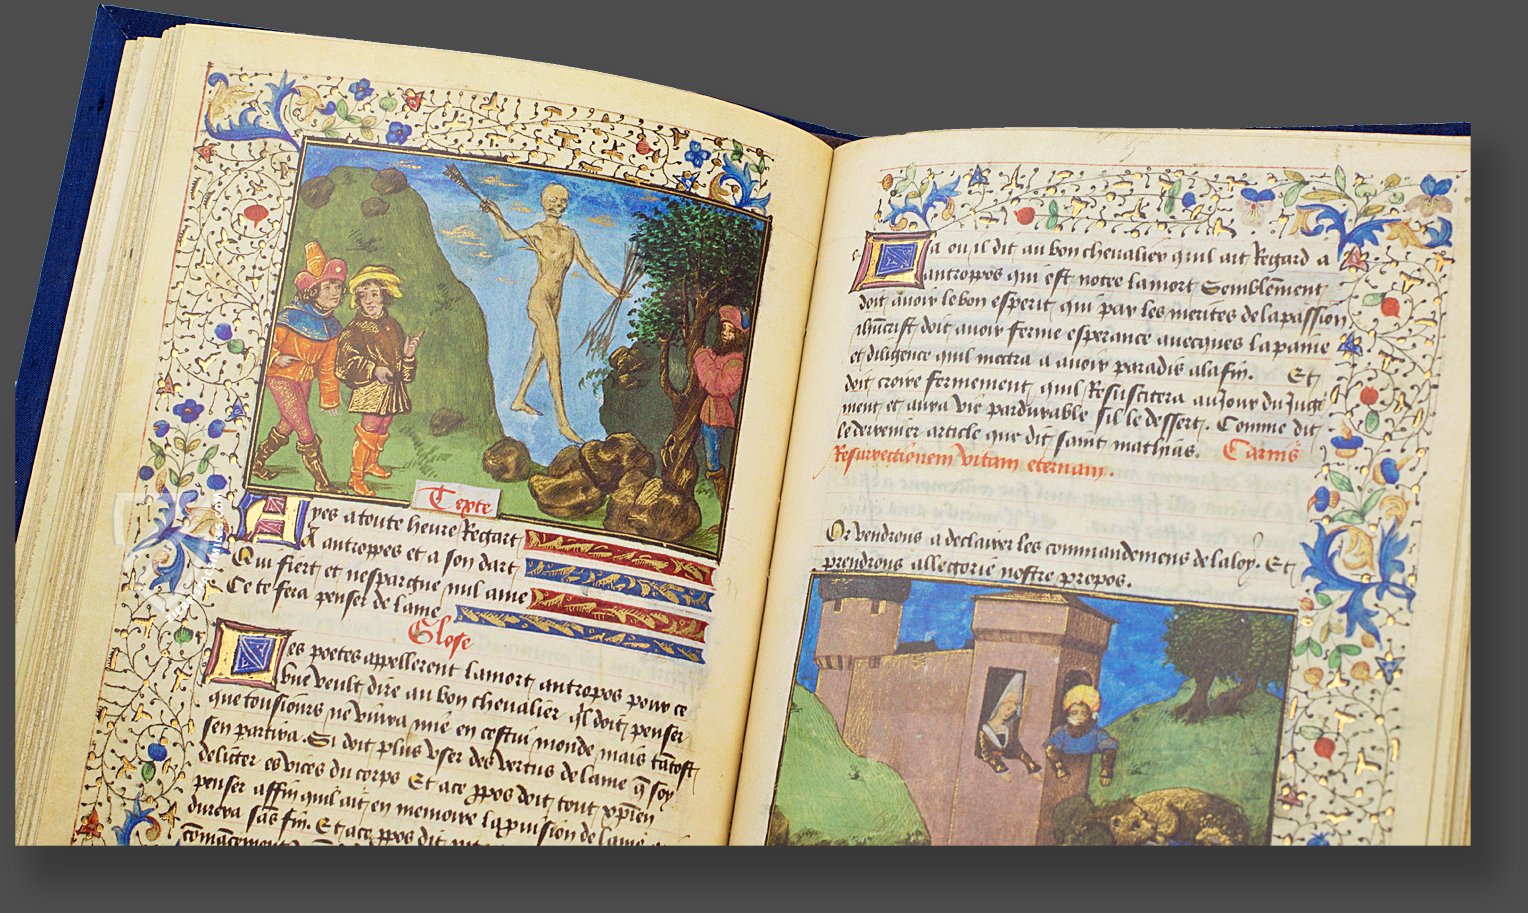 Texte
Ayes a toute heure Regart
A antropos et a son dart
Qui fiert et nespargne nul ame
Ce te fera penser de lame
Glose
Les poetes appellerent lamort antropos pour ce
veult dire au bon chevalier qͥl doit penser
que tousiours ne vivra mie en cestui monde mais tātost
sen partira. Si doit plus vser des vertus de lame q̄ soy
deliter es vices du corps Et a ce ꝓpos doit tout xp̄ien
penser affin quil ait en memoire la de lame
durera sās fin. Et a ce ꝓpos dit
La ou il dit au bon chevalier quil ait Regard a
antropos qui est notre la mort Semblēment
doit avoir le bon esperit qui par les merites de la passion
doit avoir ferme esperance avecques la paine
et diligence quil mectra a avoir paradis a la fin. Et
doit croire fermement quil Resuscitera au Jour du Juge
ment et aura vie pardurable sil le dessert. Comme dit
le derrenier article que dit saint mathias. Carnis
Resurrectionem vitam eternam.
Or vendrons a declairer les commandemens de la loy. Et
prendrons allegorie nostre propos.